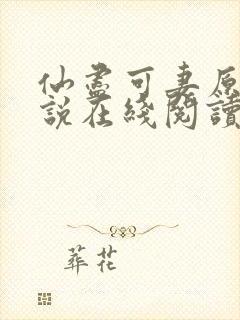 仙盡可妻原
說在綫閱讀
葬花